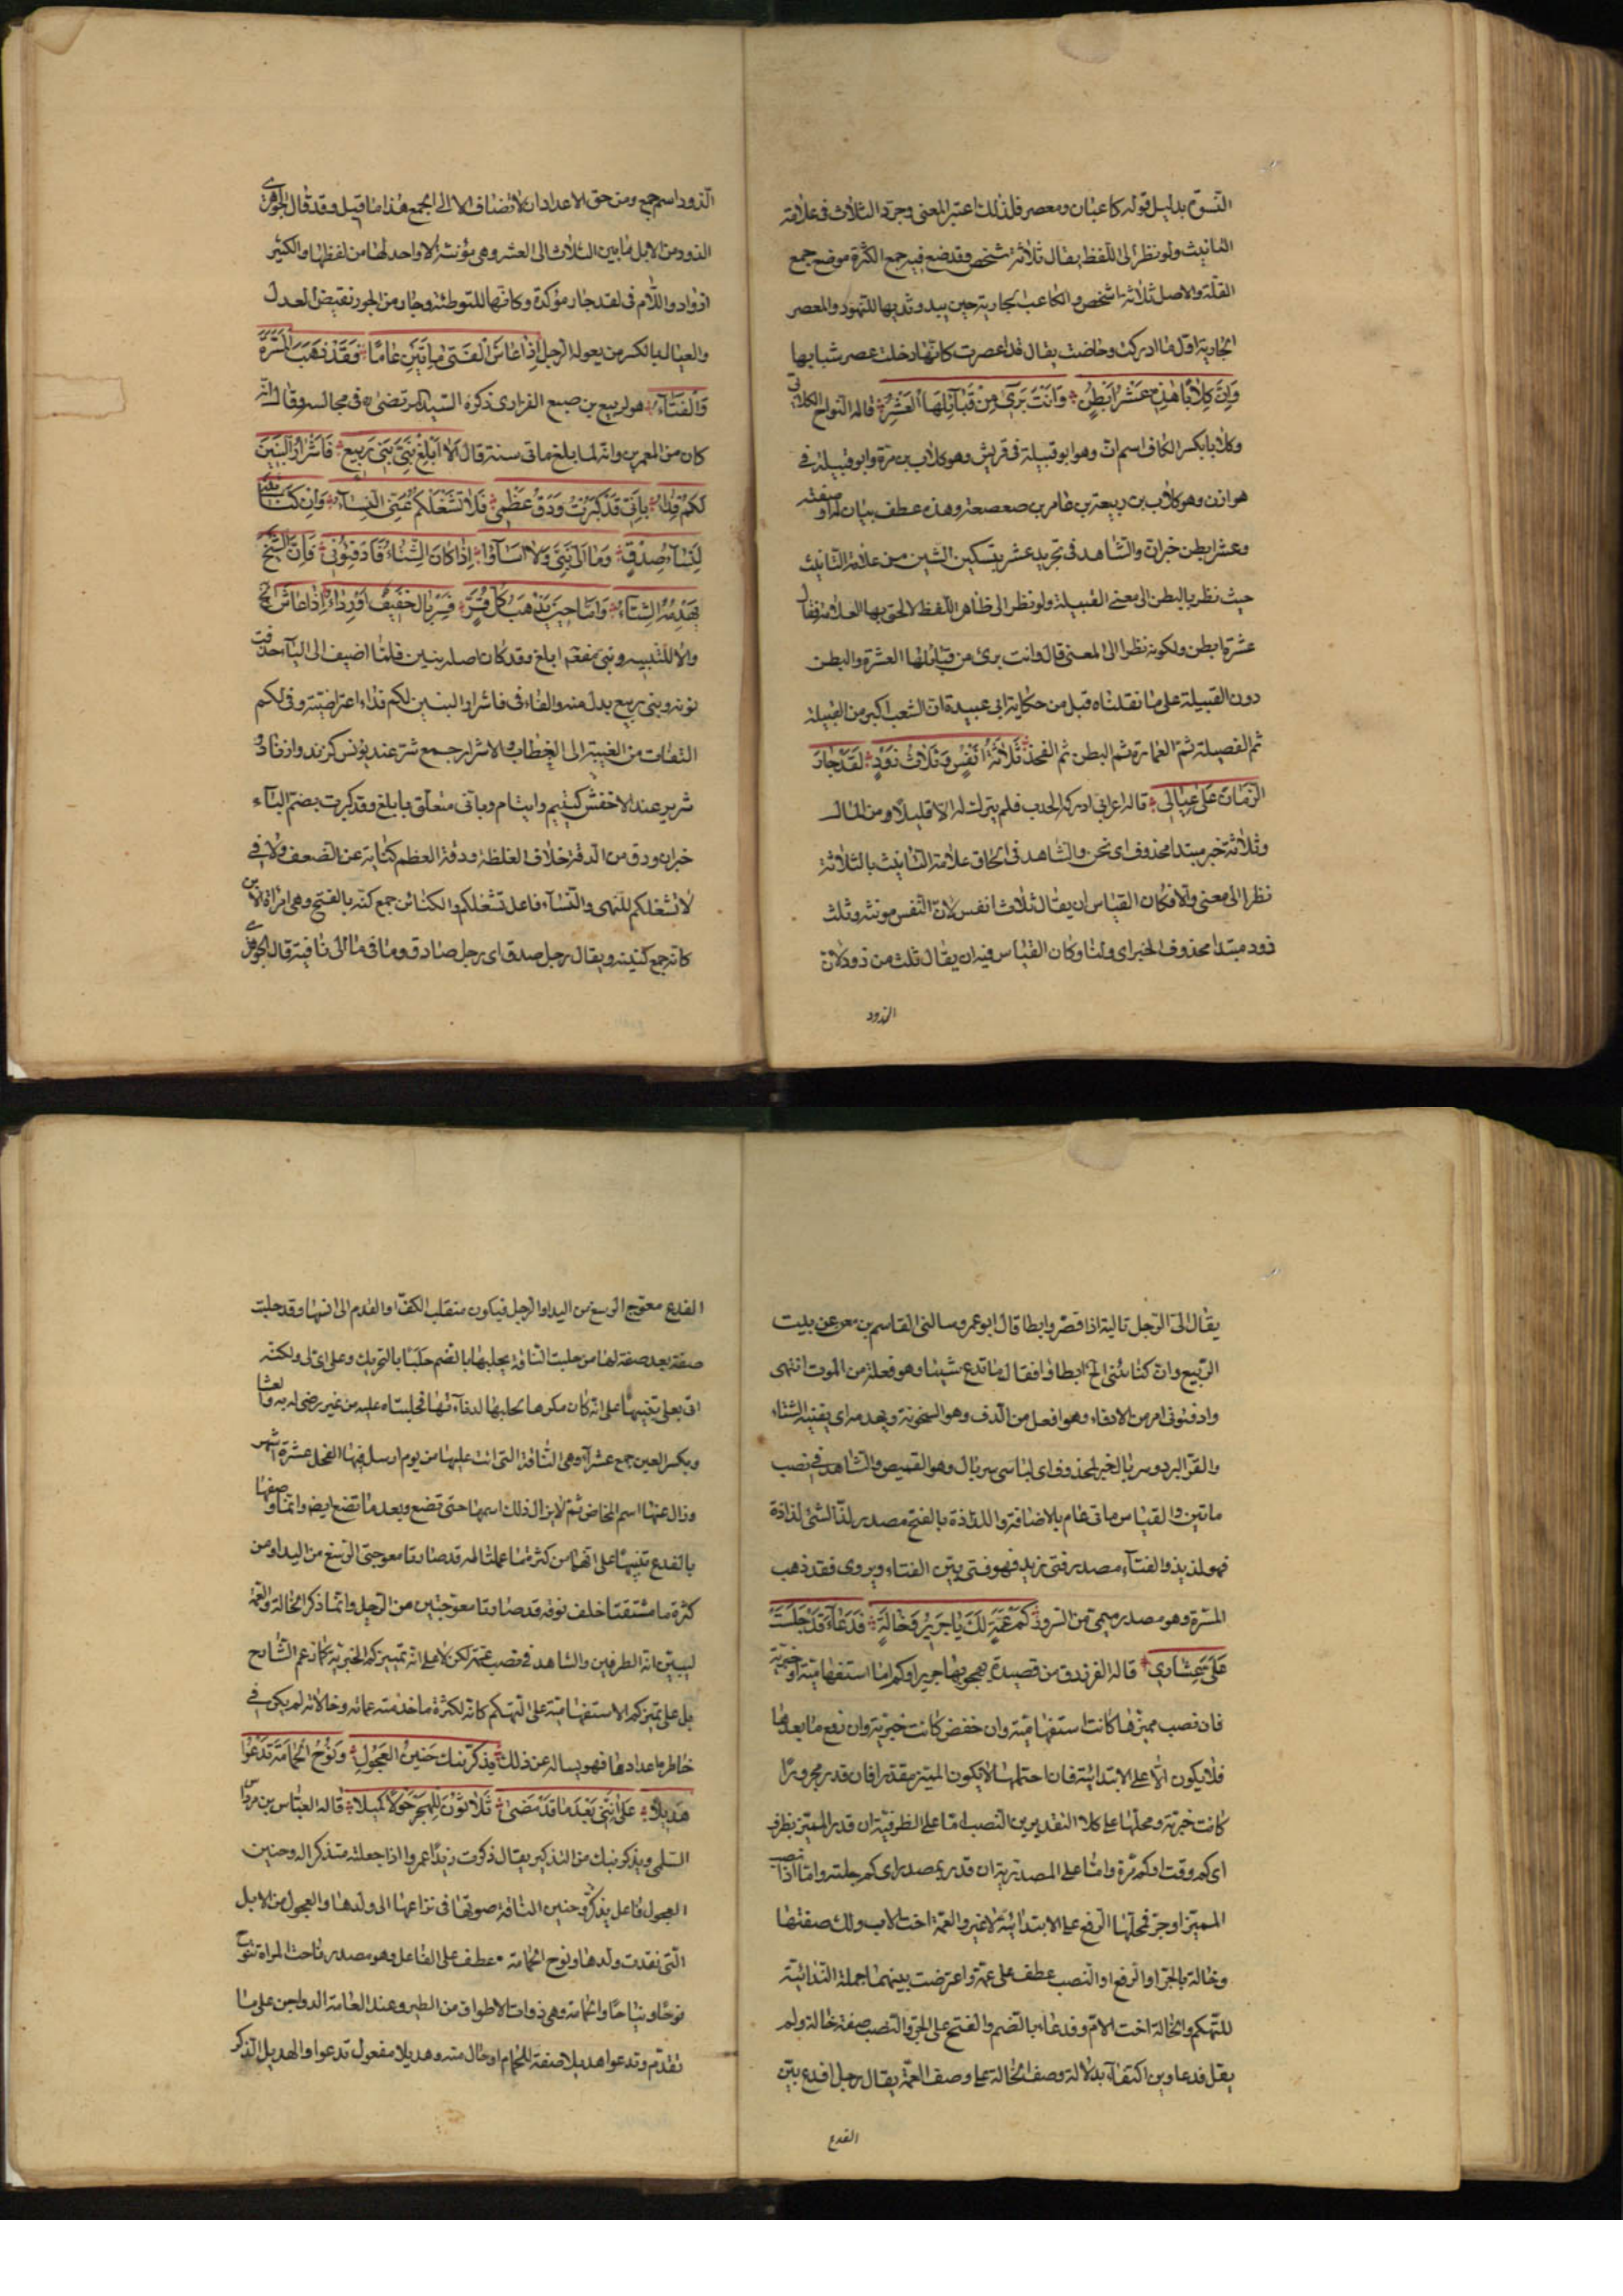 النسوة بدليل قوله كاعبان ومعصر فلذلك اعتبر المعنى وجرد الثلاث في علامة
التانيث ولو نظر الى اللفظ يقال ثلاثة شخص وقد ضع فيه جمع الكثرة موضع جمع
القلة والاصل ثلاثة اشخص والكاعب الجارية حين يبدو ثديها للنهود والمعصر
الجارية اول ما ادركت وحاضت يقال قد اعصرت كانها دخلت عصر شبابها
وَاِنَّ كِلَابًا هٰذِهِ عَشْرُ اَبْطُنٍ وَاَنْتَ بَرِيٌ مِنْ قَبَآئِلِهَا الْعَشْرِ قاله النواح الكلابي
وكلابا بكسر الكاف اسم ان وهو ابو قبيلة في قريش وهو كلاب بن مرة وابو قبيلة في
هوازن وهو كلاب بن ربيعة بن عامر بن صعصعة وهذه عطف بيان له او صفته
وعشر ابطن خبر ان والشاهد في تجريد عشر بتسكين الشين من علامة التانيث
حيث نظر بالبطن الى معنى القبيلة ولو نظر الى ظاهر اللفظ لالحق بها العلامة فقال
عشرة ابطن ولكونه نظر الى المعنى قال وانت برئ من قبائلها العشرة والبطن
دون القبيلة على ما نقلناه قبل من حكاية ابي عبيدة ان الشعب اكبر من القبيلة
ثم الفصيلة ثم العمارة ثم البطن ثم الفخذ ثَلَاثَةُ اَنْفُسٍ وَثَلَاثُ ذَوْدٍ لَقَدْ جَارَ
الزَّمَانُ عَلٰى عِيَالِي قاله اعرابي ادركه الجدب فلم يترك له الا قليلا ومن المال
وثلاثة خبر مبتدا محذوف اى نحن والشاهد في الحاق علامة التانيث بالثلاثة
نظرا الى معنى والا فكان القياس ان يقال ثلاث انفس لان النفس مونثه وثلث
ذود مبتدا محذوف الخبر اى ولنا وكان القياس فيه ان يقال ثلث من ذود لان
الذود
الذود اسم جمع ومن حق الاعداد ان لا تضاف الا الى الجمع هذا ما قيل وقد قال الجوهرى
الذود من الابل ما بين الثلاث الى العشر وهي مؤنثة لا واحد لها من لفظها والكثير
اذواد واللام في لقد جار مؤكدة وكانها للتوطئه وجار من الجور نقيض العدل
والعيال بالكسر من يعوله الرجل اِذَا عَاشَ الْفَتٰى مِائَتَيْنِ عَامًا فَقَدْ ذَهَبَ الْمَسَرَّةُ
وَالْفَتَآءُ هو لربيع بن ضبع الفزارى ذكره السيد المرتضى ره في مجالسه وقال انه
كان من المعمرين وانه لما بلغ مائتى سنة قال اَلَا اَبْلِغْ بَنِيَّ بَنِي رَبِيعٍ فَاَشْرَارُ الْبَنِينَ
لَكُمْ فِدَاءٌ بِاَنِّي قَدْ كَبُرْتُ وَدَقَّ عَظْمِي فَلَا تَشْغَلْكُمْ عَنِّي النِّسَآءُ وَاِنَّ كَنَائِنِي
لَنِسَآءُ صِدْقٍ وَمَا اَلٰى بَنِيَّ وَلَا اَسَآؤُا اِذَا كَانَ الشِّتَاءُ فَادْفِئُونِي فَاِنَّ الشَّيْخَ
يَهْدِمُهُ الشِّتَآءُ وَاَمَّا حِينَ يَذْهَبُ كُلُّ قُرٍّ فَسِرْبَالٌ خَفِيفٌ اَوْ رِدَاءُ اِذَا عَاشَ الخ
والا للتنبيه وبنى مفعول ابلغ وقد كان اصله بنين فلما اضيف الى الياء حذفت
نونه وبنى ربيع بدل منه والفاء في فاشرار البنين لكم فداء اعتراضيته وفي لكم
التفات من الغيبة الى الخطاب والاشرار جمع شر عند يونس كزند وازناد و
شرير عند الاخفش كيتيم وايتام وبانى متعلق بابلغ وقد كبرت بضم الباء
خبر ان ودق من الدقة خلاف الغلظة ودقة العظم كناية عن الضعف ولا في
لا تشغلكم للنهى والنساء فاعل تشغلكم والكنائن جمع كنه بالفتح وهي امراة الابن
كانه جمع كنينه ويقال رجل صدق اى رجل صادق وما في ما الى نافية قال الجوهرى
يقال الى الرجل تالية اذا قصر وابطا قال ابو عمرو سالنى القاسم بن معن عن بيت
الربيع وان كنائنى الخ ابطاوا فقال ما تدع شيئا وهو فعلت من الوت انتهى
وادفئونى امر من الادفاء وهو افعل من الدف وهو السخونة ويهدمه اى يفنيه الشتاء
والقر البرد وسربال خبر لمحذوف اى لباسى سربال وهو القميص والشاهد في نصب
ماتين والقياس ماتى عام بالاضافة واللذاذة بالفتح مصدر لذ الشئ لذاذة
فهو لذيذ والفتاء مصدر فتى زيد فهو فتى بين الفتاء ويروى فقد ذهب
المسرة وهو مصدر ميمى من السرور كَمْ عَمَّةٍ لَكَ يَا جَرِيْرُ وَخَالَةٍ فَدْعَآءَ قَدْ حَلَبَتْ
عَلَيَّ عِشَارِي قاله الفرزدق من قصيدة يهجو بها جريرا وكم اما استفهامية او خبرية
فان نصب مميزها كانت استفهامية وان خفض كانت خبرية وان رفع ما بعدها
فلا يكون الا على الابتدائية فان احتملها لا يكون المميز مقدر افان قدر مجرورا
كانت خبرية ومحلها على كلا التقديرين النصب اما على الظرفية ان قدر المميز بظرف
اى كم وقت او كم مرة واما على المصدرية ان قدر بمصدر اى كم حلبة واما اذا نصب
المميز او جر فمحلها الرفع على الابتدائية لا غير والعمة اخت الاب ولك صفتها
وخالة بالجر او الرفع او النصب عطف على عمة واعترضت بينهما جملة الندائية
للتهكم والخالة اخت الام وفدعاء بالضم والفتح على الجر والنصب صفة خالة ولم
يقل فدعاوين اكتفاء بدلالة وصف الخالة على وصف العمة يقال رجل افدع بين
الفدع
الفدع معوج الرسغ من اليد او الرجل فيكون منقلب الكف او القدم الى انسها وقد حلبت
صفة بعد صفة لها من حلبت الناقة يحلبها بالضم حلبا بالتحريك وعلى اى لى ولكنه
اتى بعلى تنبيها على انه كان مكرها بحلبها لدناءتها فحلبتاه عليه من غير رضى له به والعشار
وبكسر العين جمع عشراء وهي الناقة التى اتت عليها من يوم ارسل فيها الفحل عشرة اشهر
وزال عنها اسم المخاض ثم لا يزال ذلك اسمها حتى تضع وبعد ما تضع ايض وانما وصفها
بالفدع تنبيها على انهما من كثرة ما عملتا له قد صارتا معوجتى الرسغ من اليد او من
كثرة ما مشتتا خلف نوقه قد صارتا معوجتين من الرجل وانما ذكر الخالة والعمة
ليبين انه الطرفين والشاهد في نصب عمة لكن لا على انه تمييز كم الخبرية كما زعم الشارح
بل على تميز كم الاستفهامية على التهكم كانه لكثرة ما خدمته عماته وخالاته لم يكن في
خاطره اعدادها فهو يساله عن ذلك يُذَكِّرُنِيكِ حَنِينُ الْعَجُولِ وَنَوْحُ الْحَمَامَةِ تَدْعُوا
هَدِيلًا عَلٰى اَنَّنِي بَعْدَ مَا قَدْ مَضٰى ثَلَاثُوْنَ لِلْهَجْرِ حَوْلًا كَمِيلًا قاله العباس بن مرداس
السلمى ويذكرنيك من التذكير يقال ذكرت زيدا عمروا اذا جعلته متذكرا له وحنين
العجول فاعل يذكر وحنين الناقة صوتها في نزاعها الى ولدها والعجول من الابل
التى فقدت ولدها ونوح الحمامة عطف على الفاعل وهو مصدر ناحت المراة تنوح
نوحا ونياحا والحمامة وهي ذوات الاطواق من الطير وعند العامة الدواجن على ما
تقدم وتدعوا هديلا صفة للحمام او حال منه وهديلا مفعول تدعوا والهديل الذكر